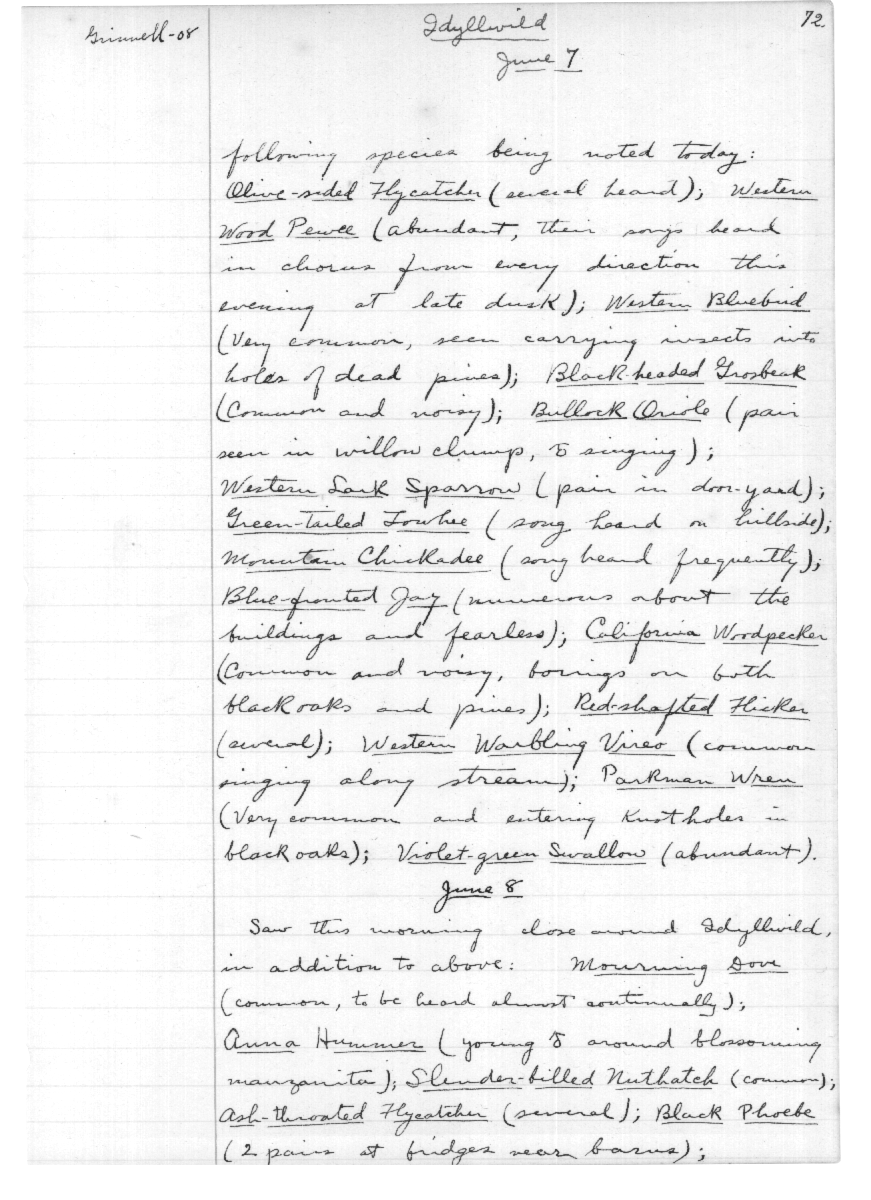 Grinnell-08
Idyllwild
72
June 7
following species being noted today:
Olive-sided Flycatcher (several heard); Western
Wood Pewee (abundant, their songs heard
in chorus from every direction this
evening at late dusk); Western Bluebird
(Very common, seen carrying insects into
holes of dead pines); Black-headed Grosbeak
(Common and noisy); Bullock Oriole (pair
seen in willow clump, ♂ singing);
Western Lark Sparrow (pair in door-yard);
Green-tailed Towhee (song heard on hillside);
Mountain Chickadee (song heard frequently);
Blue-fronted Jay (numerous about the
buildings and fearless); California Woodpecker
(Common and noisy, borings on both
black oaks and pines); Red-shafted Flicker
(several); Western Warbling Vireo (common
singing along stream); Parkman Wren
(Very common and entering Knotholes in
black oaks); Violet-green Swallow (abundant).
June 8
Saw this morning close around Idyllwild,
in addition to above: Mourning Dove
(common, to be heard almost continually);
Anna Hummer (young ♂ around blossoming
manzanita); Slender-billed Nuthatch (common);
Ash-throated Flycatcher (several); Black Phoebe
(2 pairs at bridges near barns);